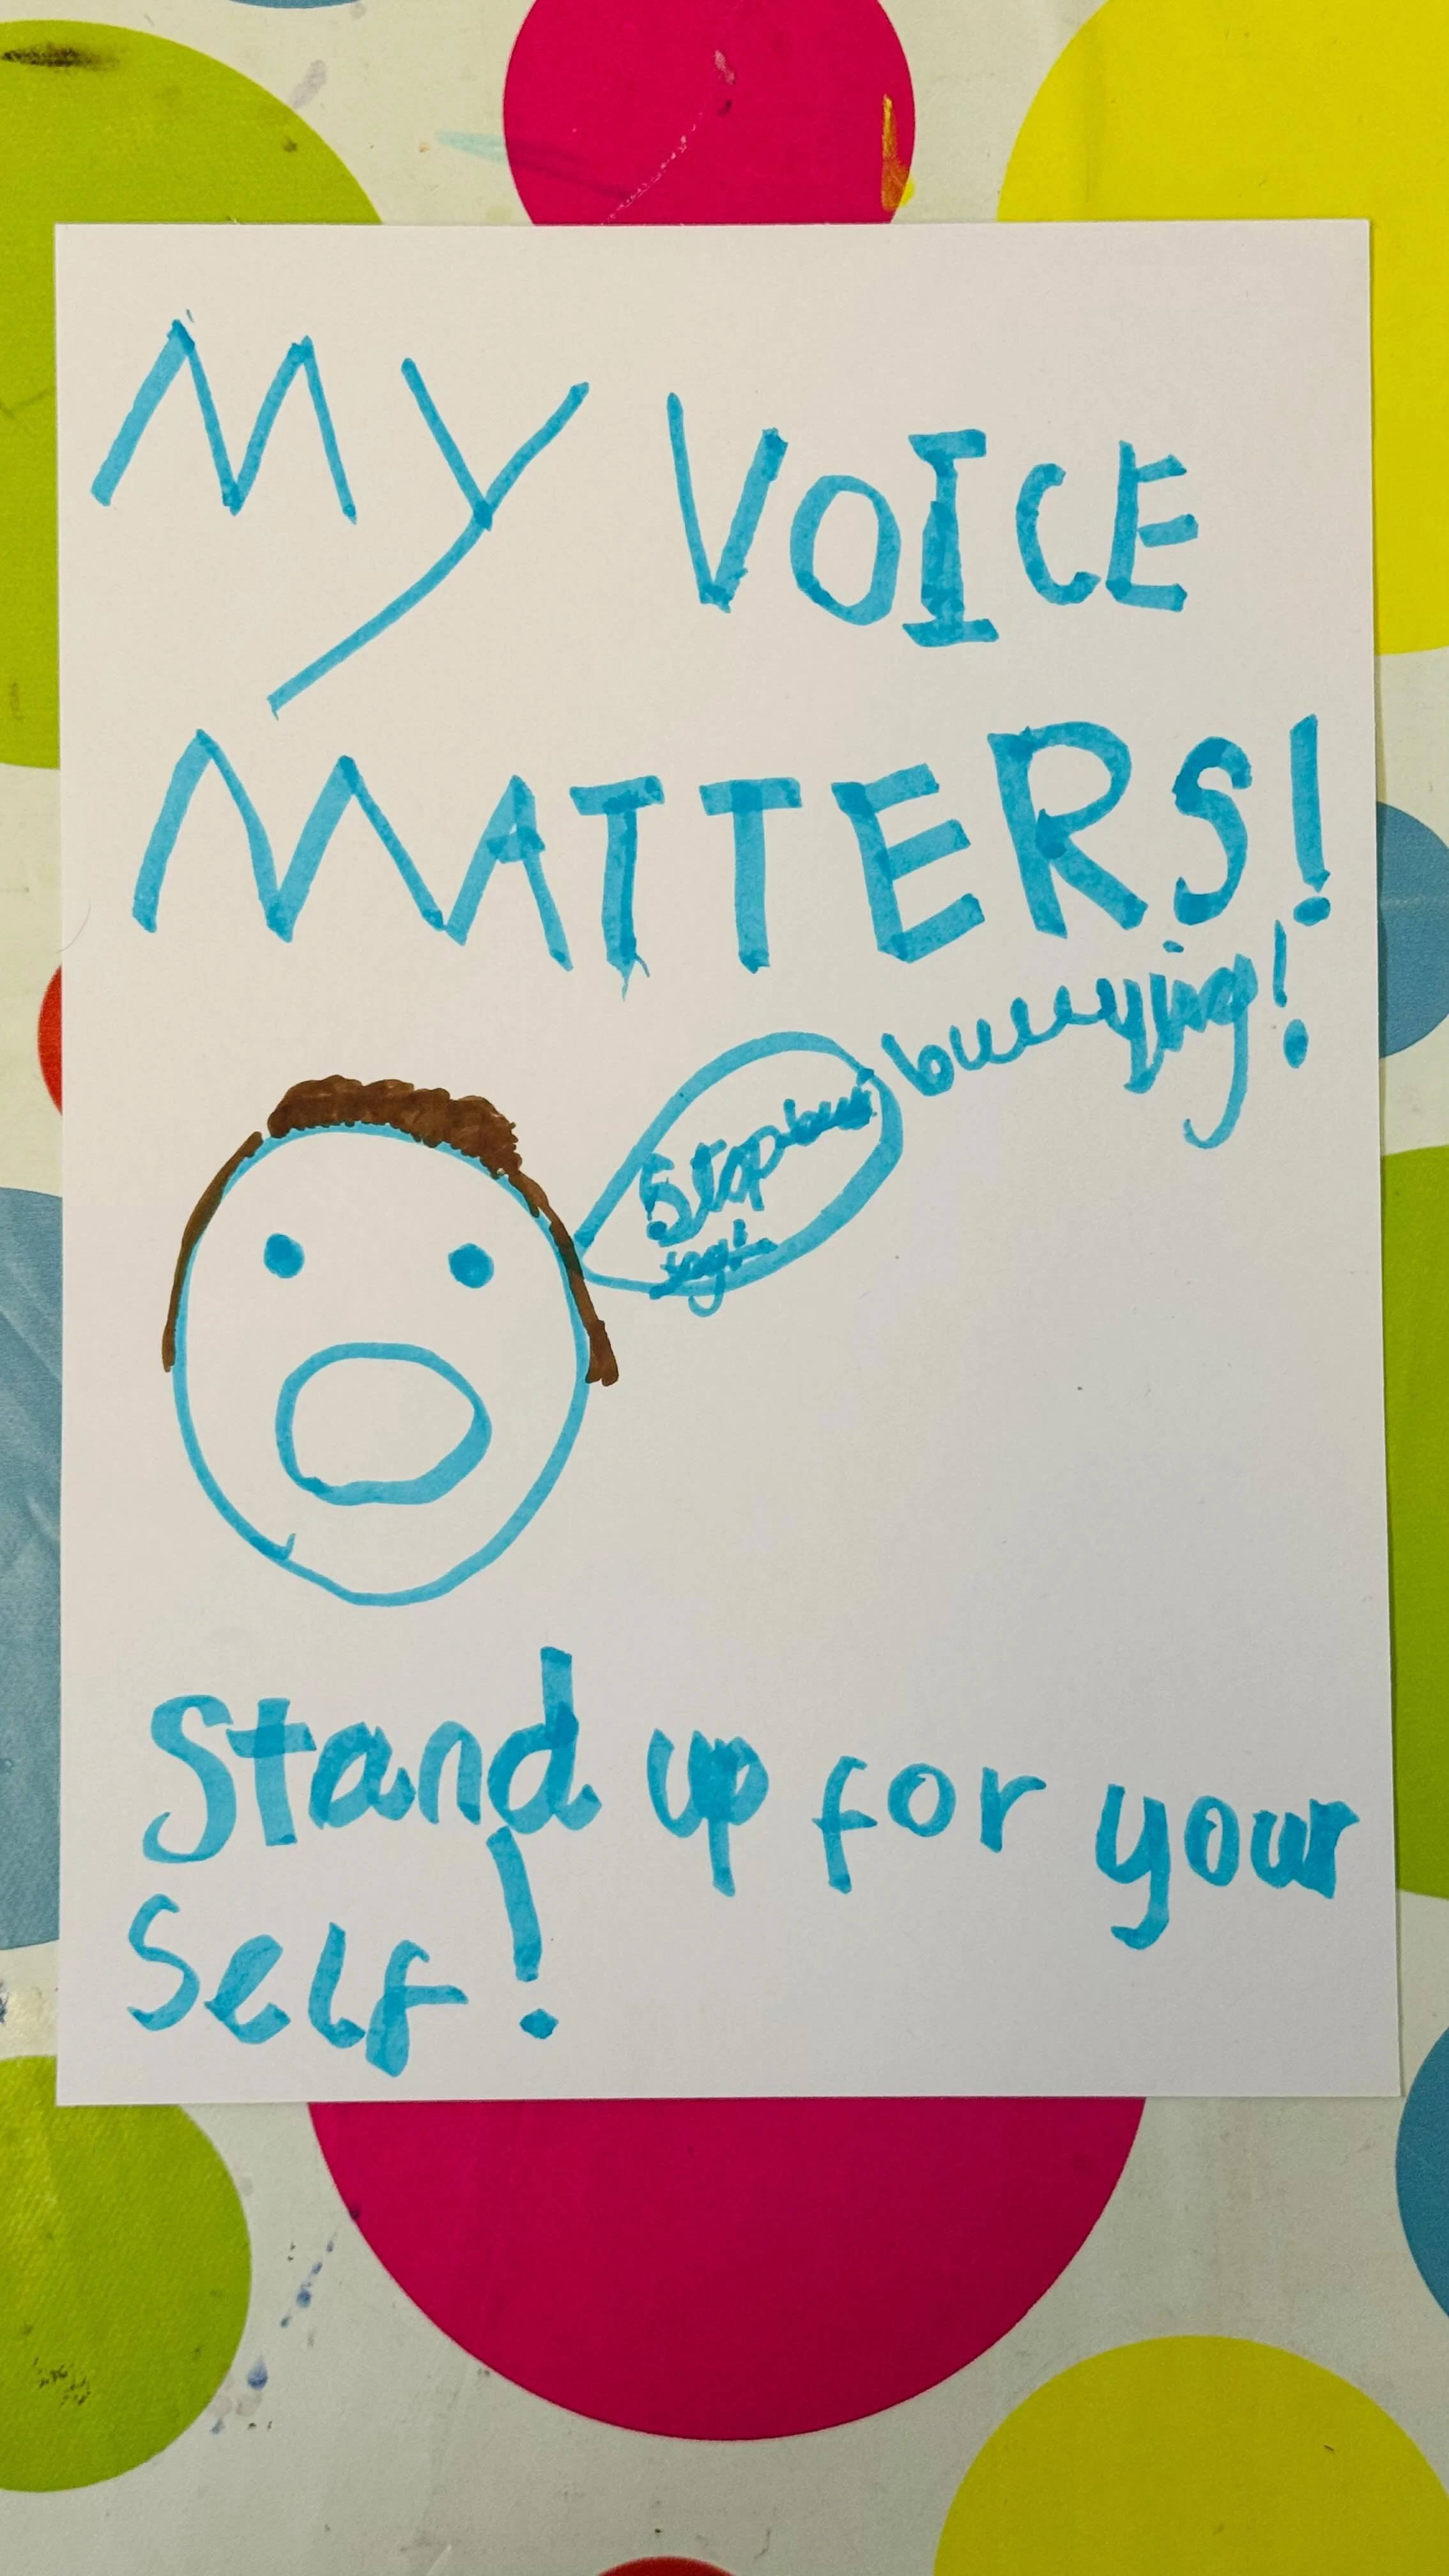 MY VOICE
MATTERS!
bullying!
Stop
Stand up for your
self!